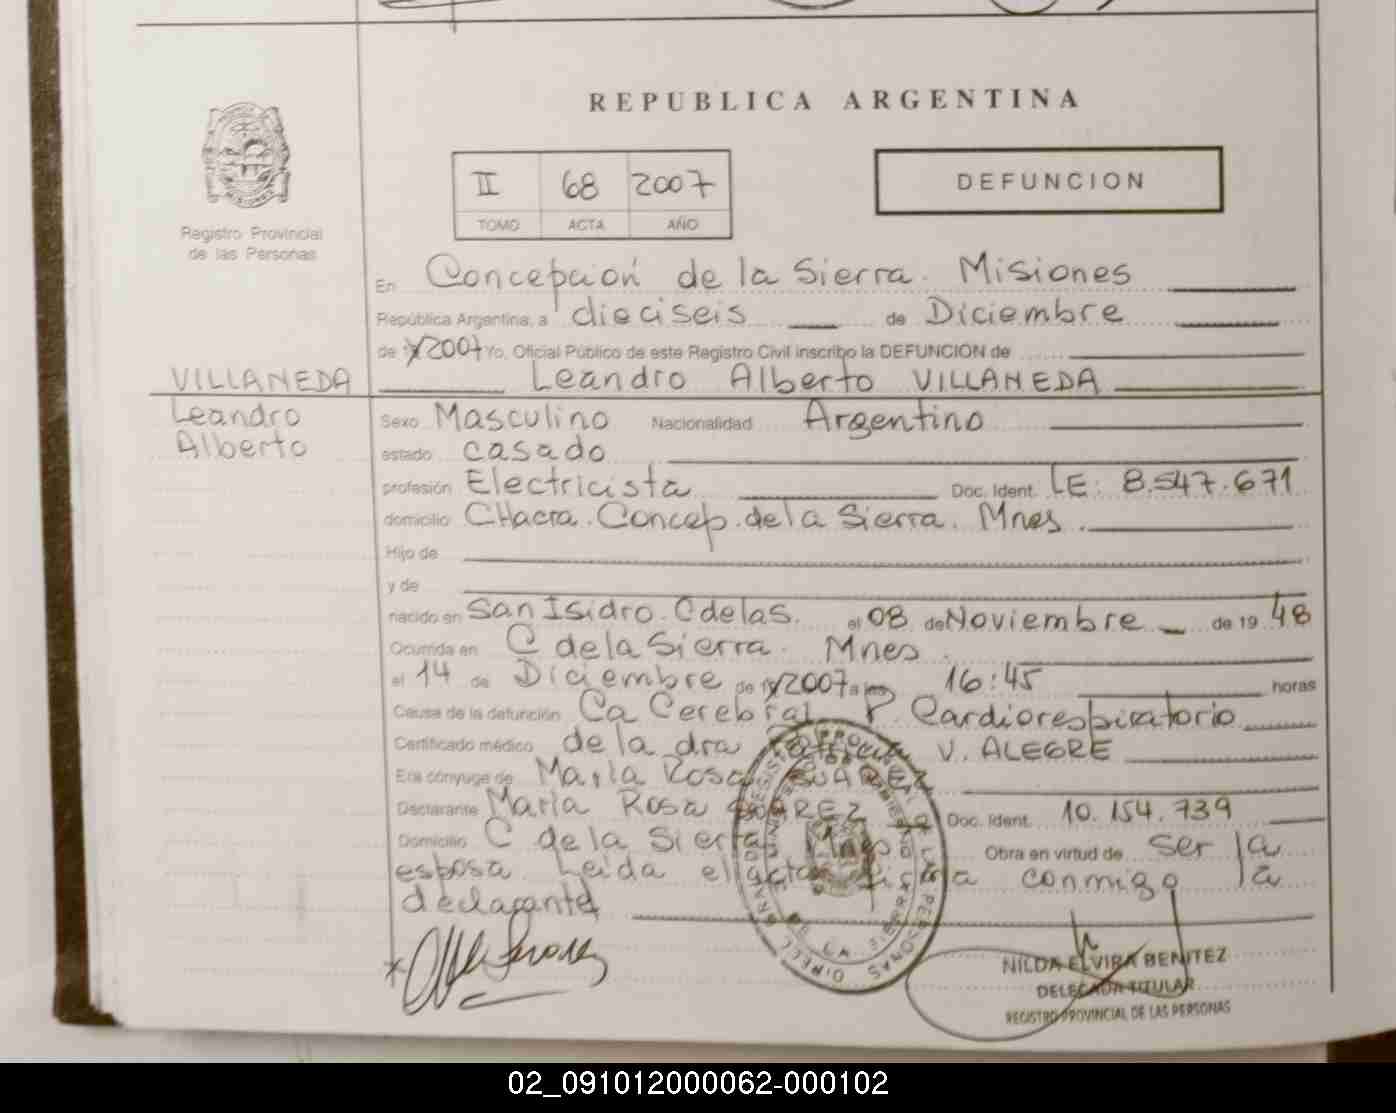 REPUBLICA ARGENTINA
II 68 2007
TOMO ACTA AÑO
DEFUNCION
Registro Provincial
de las Personas
En Concepción de la Sierra. Misiones
República Argentina, a dieciseis de Diciembre
de 2007 Yo, Oficial Público de este Registro Civil inscribo la DEFUNCION de
Leandro Alberto VILLANEDA
VILLANEDA
Leandro
Alberto
Sexo Masculino Nacionalidad Argentino
estado casado
profesión Electricista Doc. Ident. LE: 8.547.671
domicilio CHacra. Concep. de la Sierra. Mnes.
Hijo de
y de
nacido en San Isidro. C de la S. el 08 de Noviembre de 19 48
Ocurrida en C de la Sierra. Mnes.
el 14 de Diciembre de 2007 a las 16:45 horas
Causa de la defunción Ca Cerebral P. Cardiorespiratorio
Certificado médico de la dra V. ALEGRE
Era cónyuge de María Rosa SUAREZ
Declarante María Rosa SUAREZ Doc. Ident. 10.154.739
Domicilio C de la Sierra Mnes Obra en virtud de ser la
esposa Leida el acta firma conmigo la
declarante
NILDA ELVIRA BENITEZ
DELEGADA TITULAR
REGISTRO PROVINCIAL DE LAS PERSONAS
02_091012000062-000102